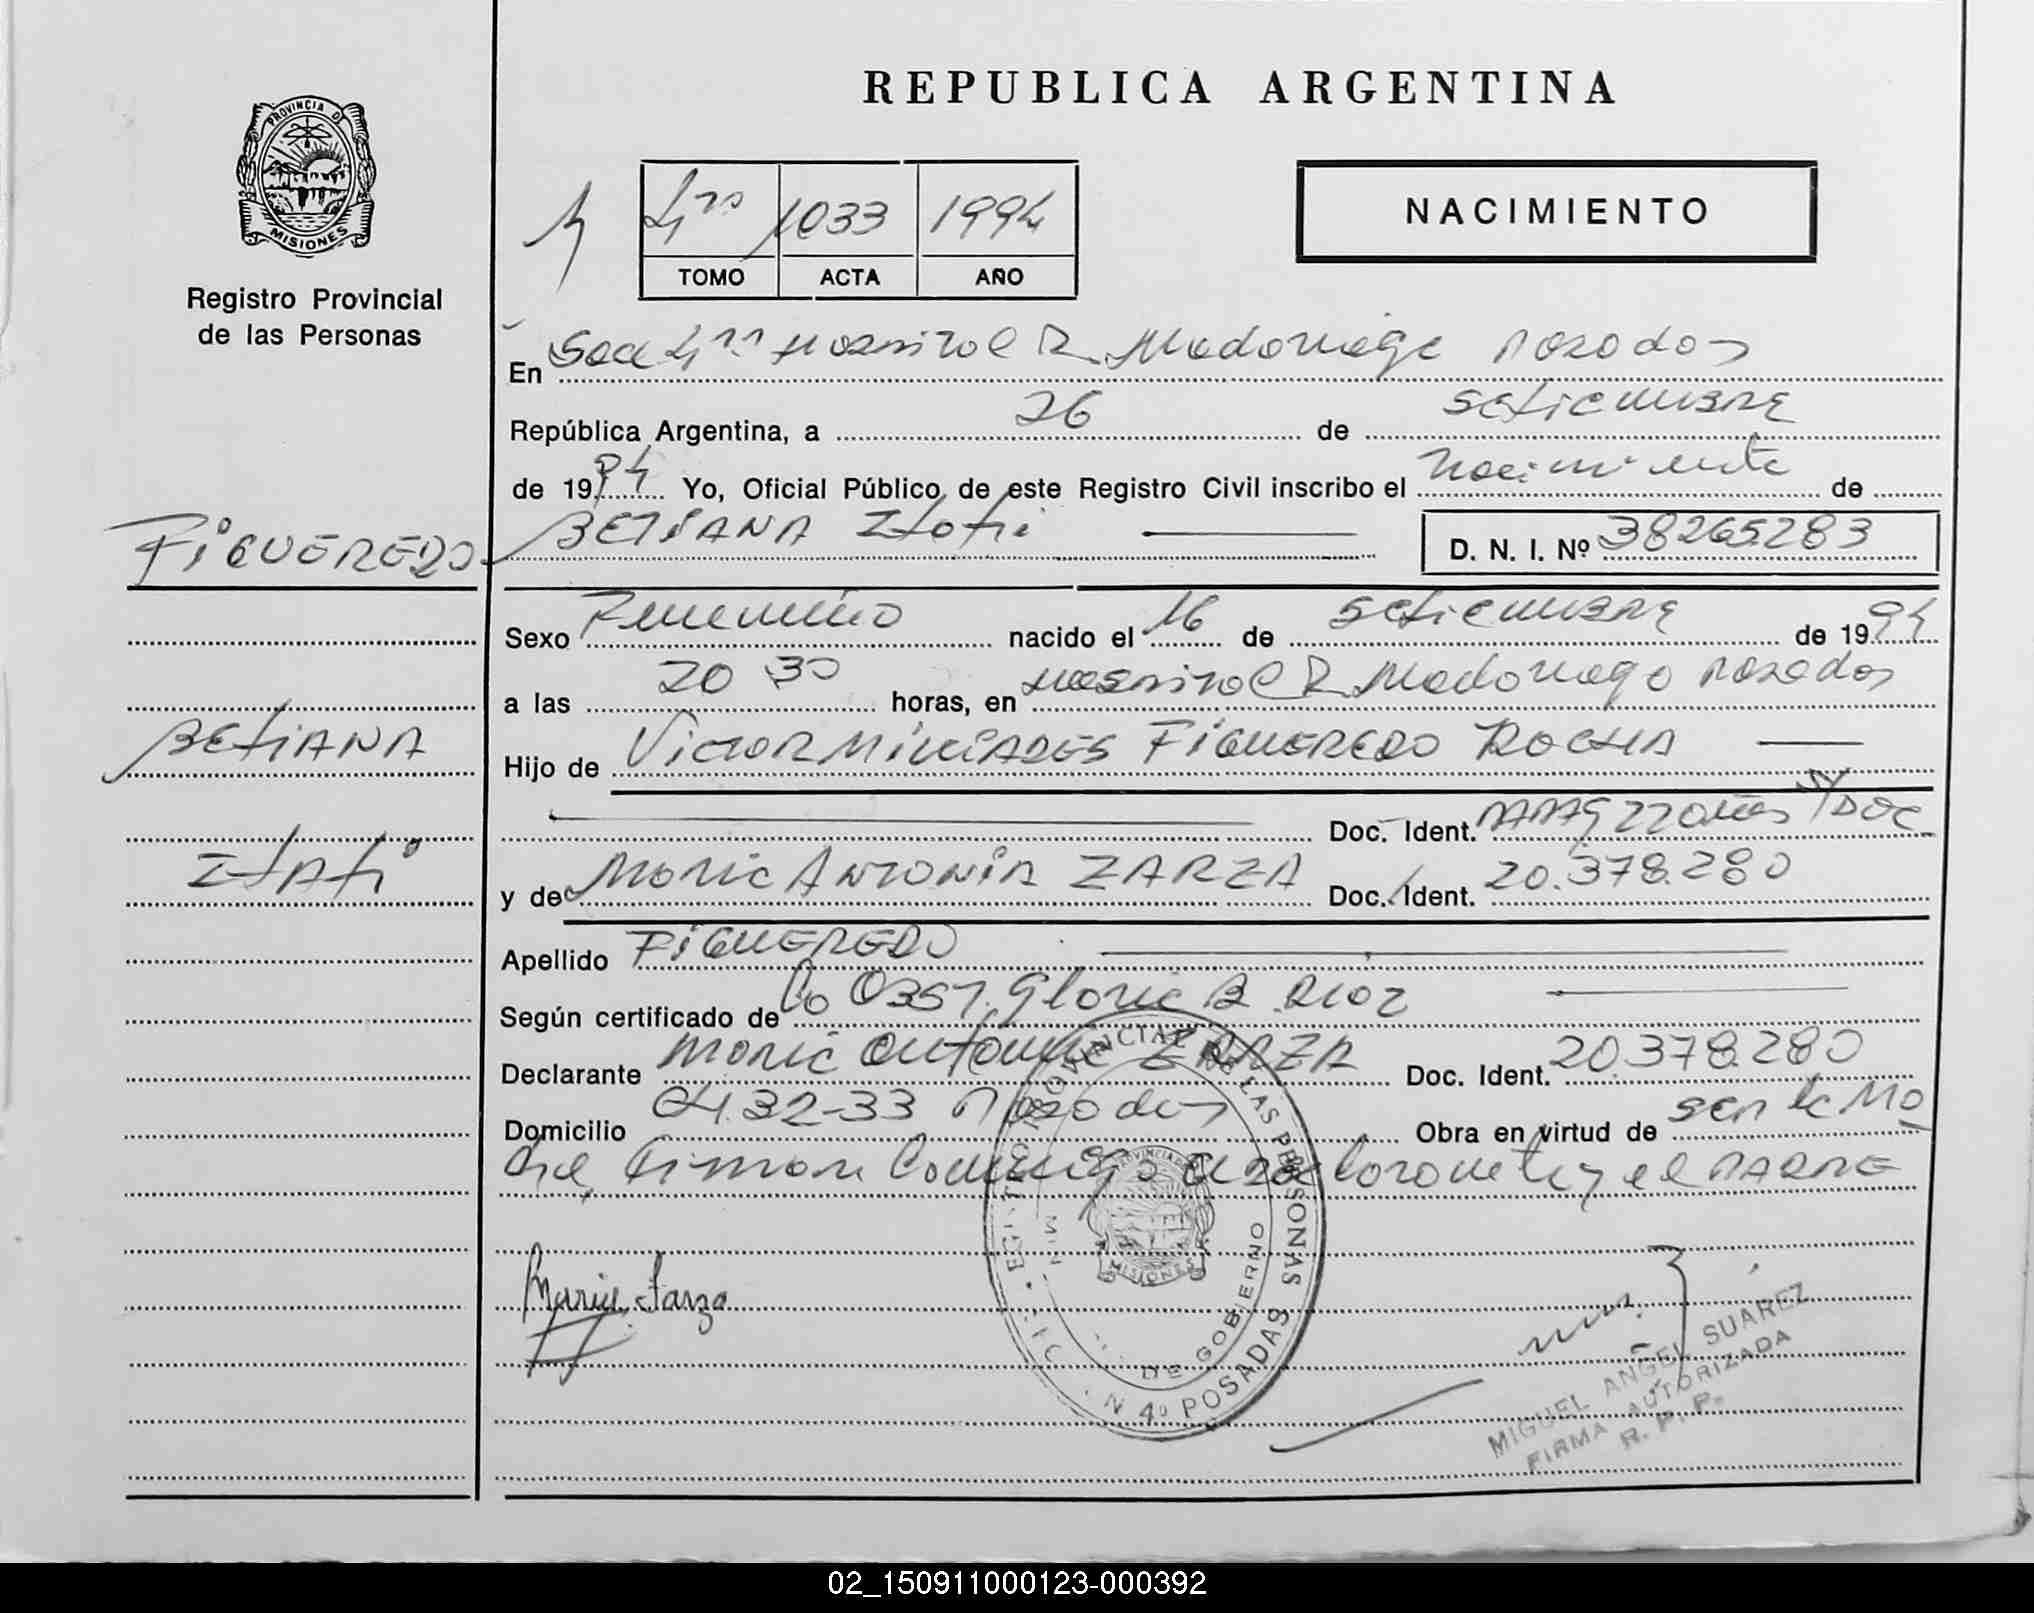 REPUBLICA ARGENTINA
PROVINCIA DE
MISIONES
Registro Provincial
de las Personas
1033 1994
TOMO ACTA AÑO
NACIMIENTO
En Secc Hospital R. Madariaga Posadas
República Argentina, a 26 de Setiembre
de 1994 Yo, Oficial Público de este Registro Civil inscribo el Nacimiento de
FIGUEREDO BETIANA Itati D. N. I. Nº 38265283
Sexo Femenino nacido el 16 de Setiembre de 1994
a las 20 30 horas, en Hospital R. Madariaga Posadas
BETIANA
Hijo de Victor Milciades FIGUEREDO ROCHA
Doc. Ident. años S/DOC
ITATI
y de Maria Antonia ZARZA Doc. Ident. 20.378.280
Apellido FIGUEREDO
Según certificado de Gloria B.
Declarante Maria Antonia ZARZA Doc. Ident. 20.378.280
Domicilio 04.32-33 Posadas Obra en virtud de ser la Ma
dre, Firman Conmigo el padre
REGISTRO PROVINCIAL DE LAS PERSONAS
MIN. DE GOBIERNO
PROVINCIA DE
MISIONES
N 4º POSADAS
Maria Zarza
MIGUEL ANGEL SUAREZ
FIRMA AUTORIZADA
R. P. P.
02_150911000123-000392